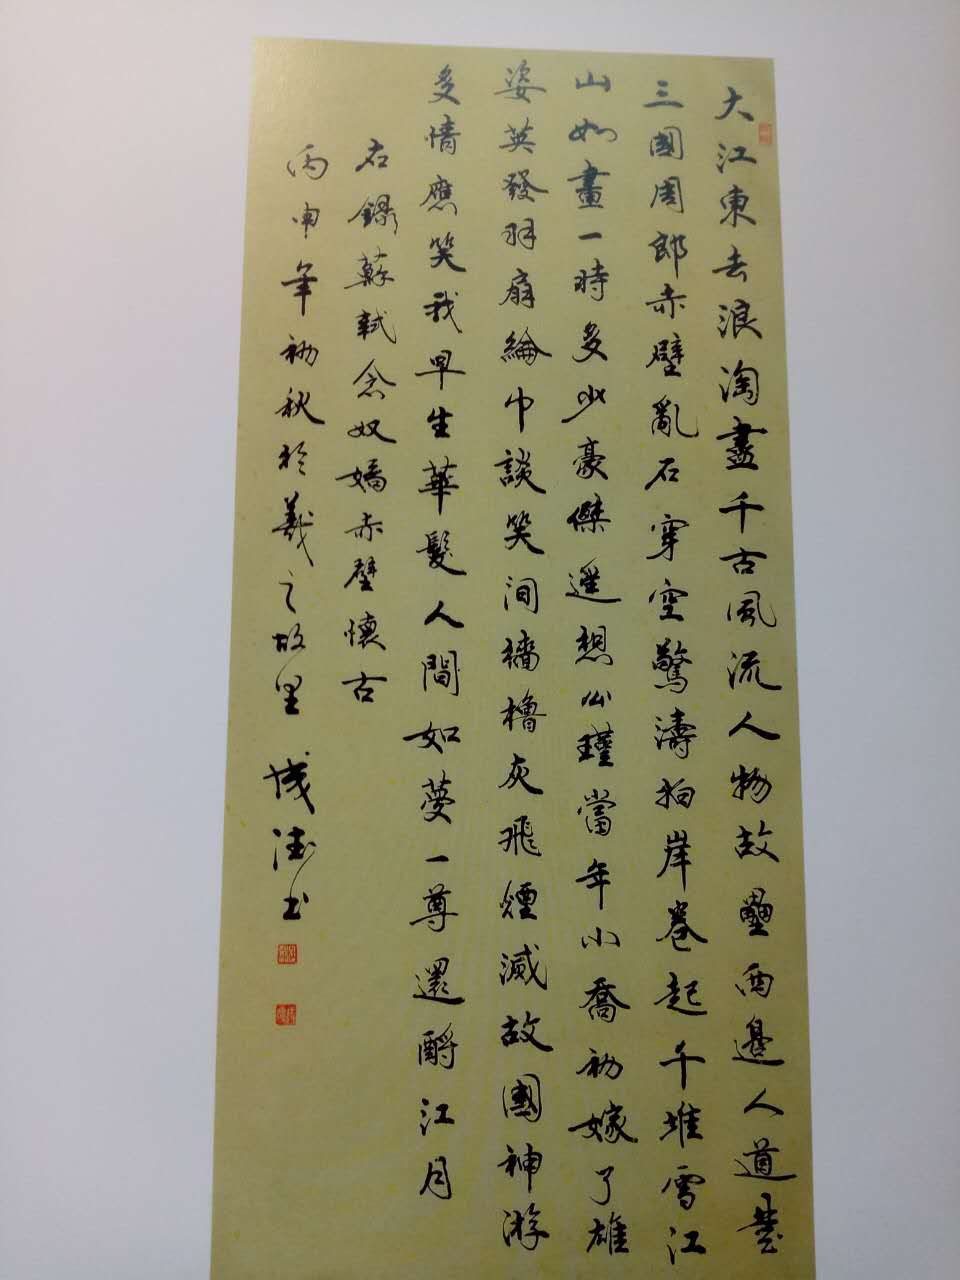 大江東去浪淘盡千古風流人物故壘西邊人道是
三國周郎赤壁亂石穿空驚濤拍岸卷起千堆雪江
山如畫一時多少豪傑遥想公瑾當年小喬初嫁了雄
姿英發羽扇綸巾談笑間檣櫓灰飛煙滅故國神游
多情應笑我早生華髮人間如夢一尊還酹江月
右録蘇軾念奴嬌赤壁懷古
丙申年初秋於羲之故里 书